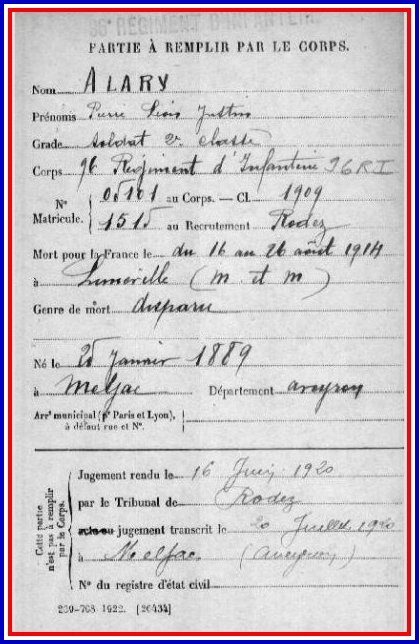 96e REGIMENT D'INFANTERIE
PARTIE À REMPLIR PAR LE CORPS.
Nom ALARY
Prénoms Pierre Justin
Grade soldat 2e classe
Corps 96 Régiment d'Infanterie 96 RI
N° Matricule. 05101 au Corps. — Cl. 1909
1515 au Recrutement Rodez
Mort pour la France le du 16 au 26 août 1914
à Lunéville (M et M)
Genre de mort disparu
Né le 25 janvier 1889
à Meljac Département aveyron
Arrt municipal (pr Paris et Lyon),
à défaut rue et N°.
Cette partie n'est pas à remplir par le Corps.
Jugement rendu le 16 Juin 1920
par le Tribunal de Rodez
jugement transcrit le 20 Juillet 1920
à Meljac (Aveyron)
N° du registre d'état civil
239-708 1922. [26434]